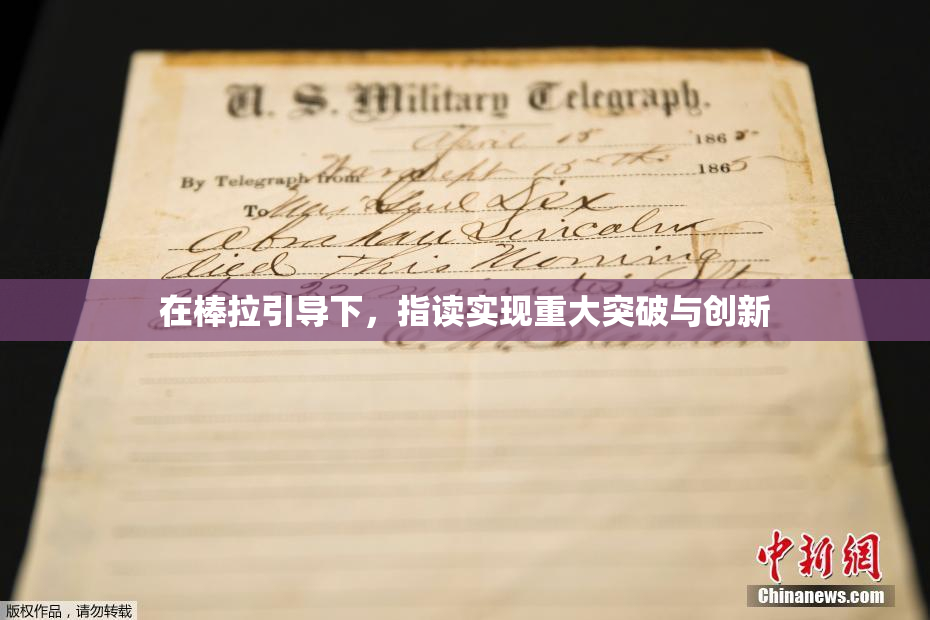 U. S. Military Telegraph.
April 15 1865
By Telegraph from War Dept 15th 1865
To Maj Genl Dix
Abraham Lincoln
died This Morning
22 minutes after
在棒拉引导下，指读实现重大突破与创新
E. M. Stanton
中新网
Chinanews.com
版权作品，请勿转载